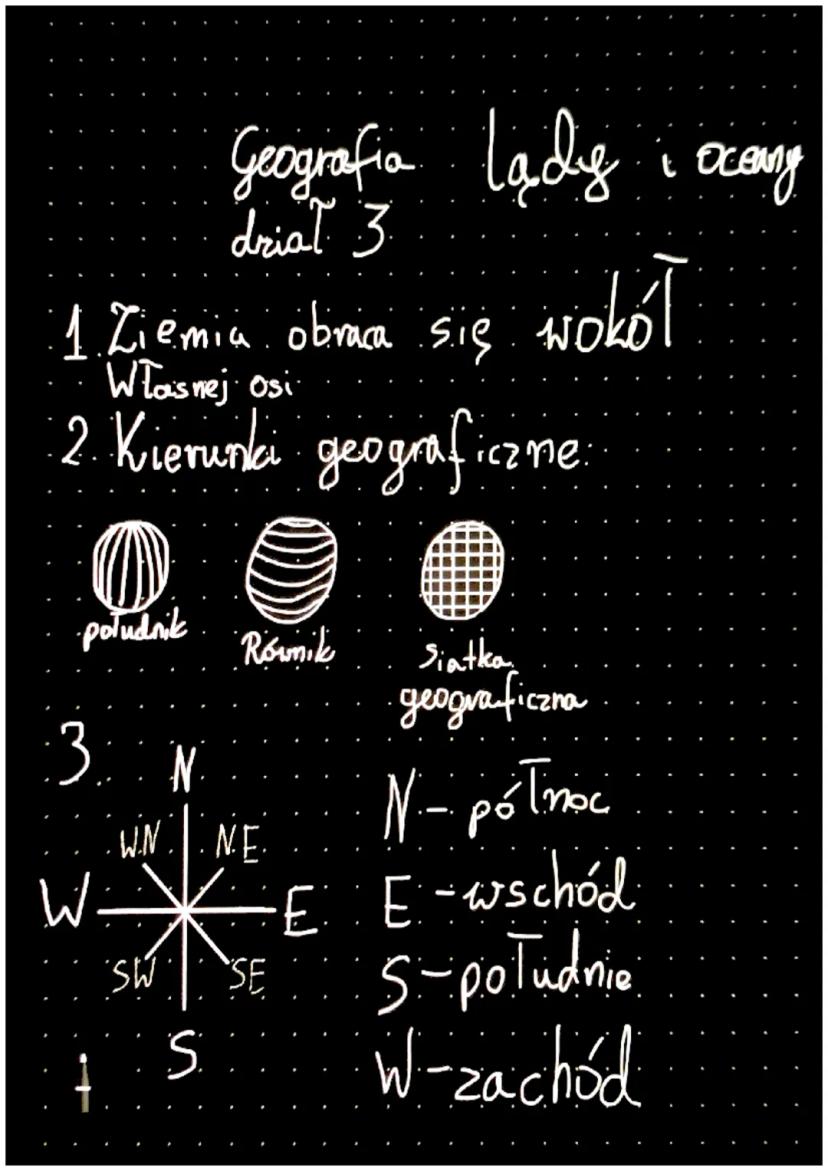 Geografia lądy i oceany
dział 3
1. Ziemia obraca się wokół
Własnej osi
2. Kierunki geograficzne:
południk
Równik
siatka
geograficzna
3.
N
WN NE
W E
SW SE
S
N - północ
E - wschód
S - południe
W - zachód